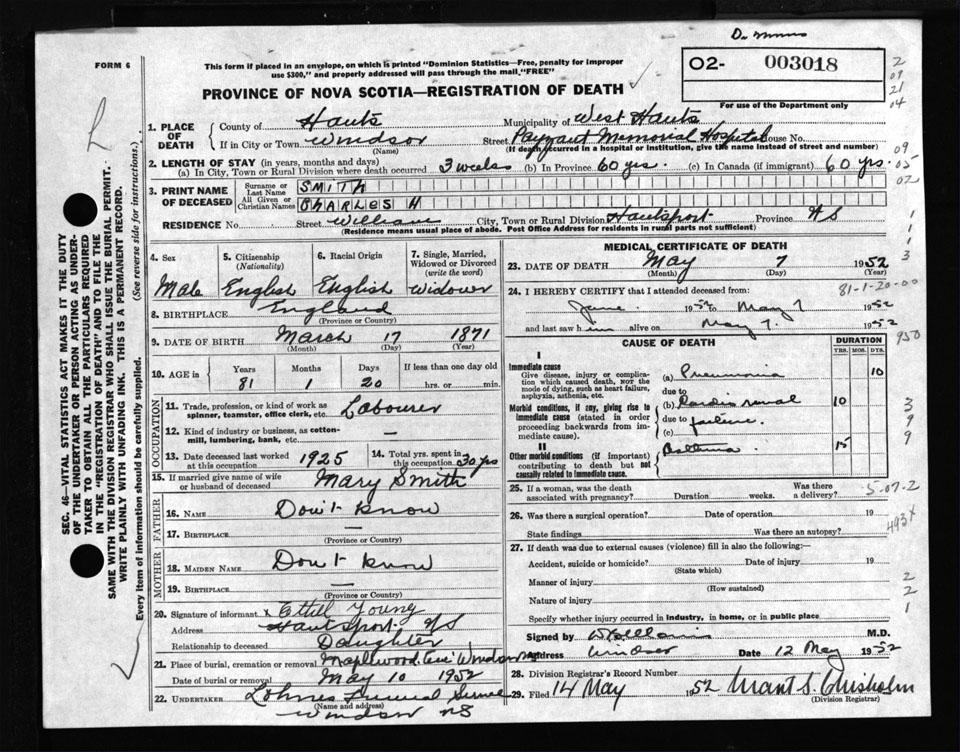 FORM 6
This form if placed in an envelope, on which is printed "Dominion Statistics—Free, penalty for improper
use $300," and properly addressed will pass through the mail, "FREE"
PROVINCE OF NOVA SCOTIA—REGISTRATION OF DEATH
02- 003018
For use of the Department only
1. PLACE OF DEATH
County of Hants Municipality of West Hants
If in City or Town Windsor (Name) Street Payzant Memorial Hospital House No.
(If death occurred in a hospital or institution, give the name instead of street and number)
2. LENGTH OF STAY (in years, months and days)
(a) In City, Town or Rural Division where death occurred 3 weeks (b) In Province 60 yrs. (c) In Canada (if immigrant) 60 yrs.
3. PRINT NAME OF DECEASED
Surname or Last Name SMITH
All Given or Christian Names CHARLES H
RESIDENCE No. Street William City, Town or Rural Division Hantsport Province NS
(Residence means usual place of abode. Post Office Address for residents in rural parts not sufficient)
4. Sex
Male
5. Citizenship (Nationality)
English
6. Racial Origin
English
7. Single, Married, Widowed or Divorced (write the word)
Widower
8. BIRTHPLACE England
(Province or Country)
9. DATE OF BIRTH March 17 1871
(Month) (Day) (Year)
10. AGE in Years Months Days If less than one day old
81 1 20 hrs. or min.
OCCUPATION
11. Trade, profession, or kind of work as spinner, teamster, office clerk, etc. Labourer
12. Kind of industry or business, as cotton-mill, lumbering, bank, etc. —
13. Date deceased last worked at this occupation 1925
14. Total yrs. spent in this occupation 30 yrs
15. If married give name of wife or husband of deceased Mary Smith
FATHER
16. NAME Don't know
17. BIRTHPLACE —
(Province or Country)
MOTHER
18. MAIDEN NAME Don't know
19. BIRTHPLACE —
(Province or Country)
20. Signature of informant x Ethel Young
Address Hantsport NS
Relationship to deceased Daughter
21. Place of burial, cremation or removal Maplewood Cem Windsor
Date of burial or removal May 10 1952
22. UNDERTAKER Lohnes Funeral Service
(Name and address)
Windsor NS
MEDICAL CERTIFICATE OF DEATH
23. DATE OF DEATH May 7 1952
(Month) (Day) (Year)
24. I HEREBY CERTIFY that I attended deceased from: 81-1-20-00
June 1952 to May 7 1952
and last saw him alive on May 7. 1952
CAUSE OF DEATH
DURATION
YRS. MOS. DYS.
I
Immediate cause
Give disease, injury or complication which caused death, NOT the mode of dying, such as heart failure, asphyxia, asthenia, etc.
(a) Pneumonia 10
due to
Morbid conditions, if any, giving rise to immediate cause (stated in order proceeding backwards from immediate cause).
(b) Cardio renal 10
due to failure.
(c)
II
Other morbid conditions (if important) contributing to death but not causally related to immediate cause.
Asthma. 15
25. If a woman, was the death associated with pregnancy? Duration weeks. Was there a delivery?
26. Was there a surgical operation? Date of operation 19
State findings Was there an autopsy?
27. If death was due to external causes (violence) fill in also the following:—
Accident, suicide or homicide? Date of injury 19
(State which)
Manner of injury
(How sustained)
Nature of injury
Specify whether injury occurred in industry, in home, or in public place
Signed by M.D.
Address Windsor Date 12 May 1952
28. Division Registrar's Record Number
29. Filed 14 May 1952 Grant S. Chisholm
(Division Registrar)
SEC. 46—VITAL STATISTICS ACT MAKES IT THE DUTY
OF THE UNDERTAKER OR PERSON ACTING AS UNDER-
TAKER TO OBTAIN ALL THE PARTICULARS REQUIRED
IN THE "REGISTRATION OF DEATH" AND TO FILE THE
SAME WITH THE DIVISION REGISTRAR WHO SHALL ISSUE THE BURIAL PERMIT.
WRITE PLAINLY WITH UNFADING INK. THIS IS A PERMANENT RECORD.
Every item of information should be carefully supplied. (See reverse side for instructions.)
2
09
21
04
09
05
02
1
1
1
3
950
3
9
9
5-07-2
493x
2
2
1